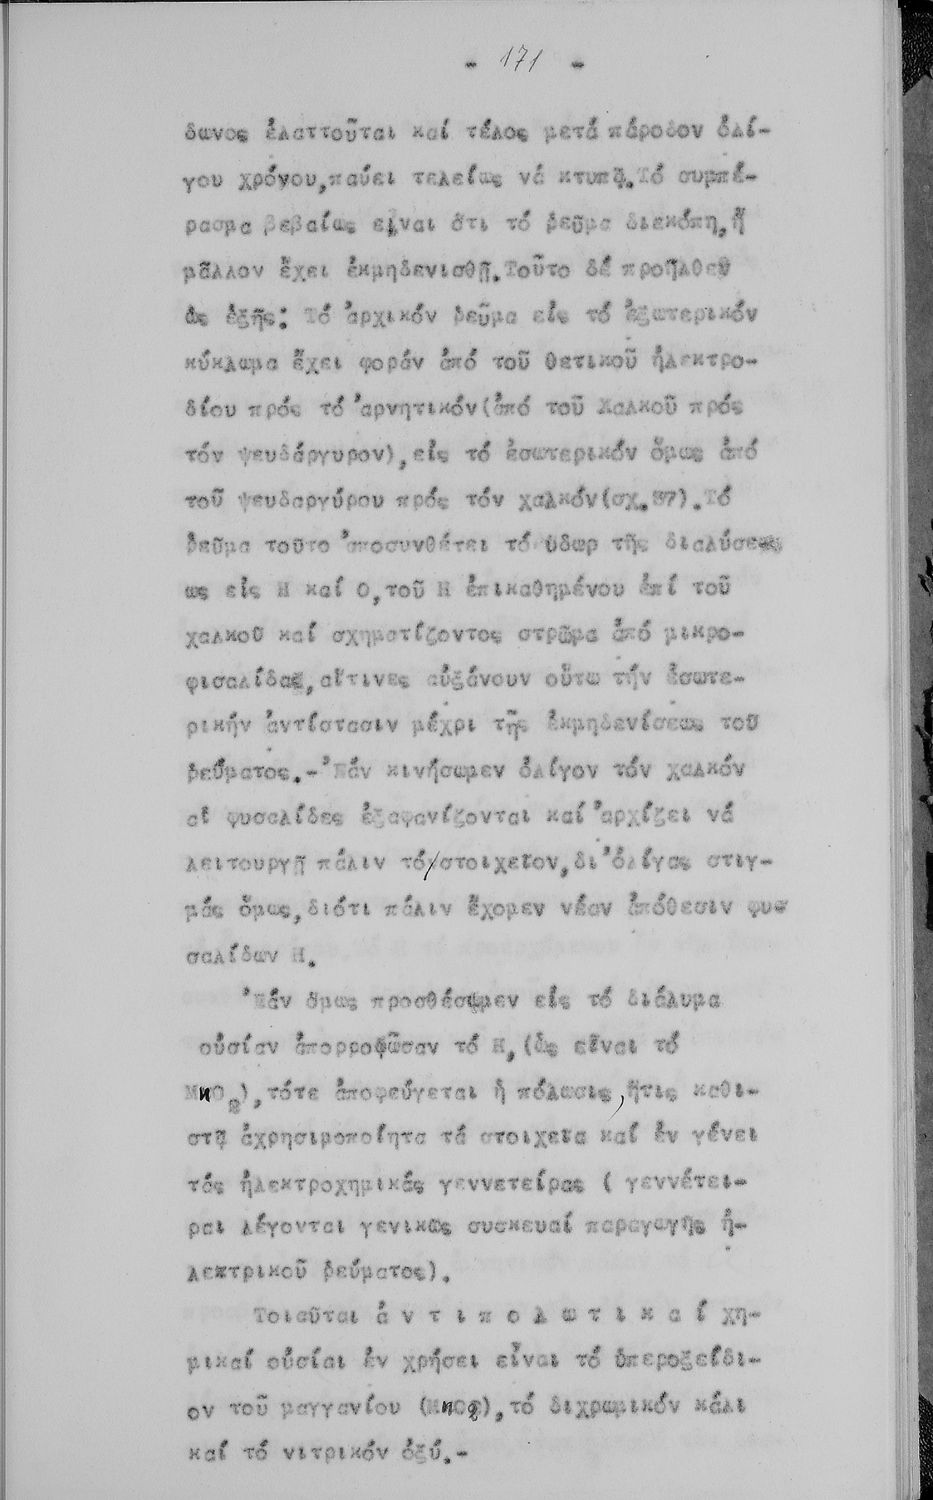 - 171 -
δωνος ἐλαττοῦται καί τέλος μετά πάροδον ὀλί-
γου χρόνου,παύει τελείως νά κτυπᾷ.Τό συμπέ-
ρασμα βεβαίως εἶναι ὅτι τό ῥεῦμα διεκόπη,ἤ
μᾶλλον ἔχει ἐκμηδενισθῇ.Τοῦτο δέ προῆλθεν
ὡς ἑξῆς: Τό ἀρχικόν ῥεῦμα εἰς τό ἐξωτερικόν
κύκλωμα ἔχει φοράν ἀπό τοῦ θετικοῦ ἠλεκτρο-
δίου πρός τό ἀρνητικόν(ἀπό τοῦ Χαλκοῦ πρός
τόν ψευδάργυρον),εἰς τό ἐσωτερικόν ὅμως ἀπό
τοῦ ψευδαργύρου πρός τόν χαλκόν(σχ.57).Τό
ῥεῦμα τοῦτο ἀποσυνθέτει τό ὕδωρ τῆς διαλύσεως
ως εἰς Η καί Ο,τοῦ Η ἐπικαθημένου ἐπί τοῦ
χαλκοῦ καί σχηματίζοντος στρῶμα ἀπό μικρο-
φισαλίδας,αἵτινες αὐξάνουν οὕτω τήν ἐσωτε-
ρικήν ἀντίστασιν μέχρι τῆς ἐκμηδενίσεως τοῦ
ῥεύματος.-Ἐάν κινήσωμεν ὀλίγον τόν χαλκόν
αἱ φυσαλίδες ἐξαφανίζονται καί ἀρχίζει νά
λειτουργῇ πάλιν τό/στοιχεῖον,δι'ὀλίγας στιγ-
μάς ὅμως,διότι πάλιν ἔχομεν νέαν ἀπόθεσιν φυσ
σαλίδων Η.
Ἐάν ὅμως προσθέσωμεν εἰς τό διάλυμα
οὐσίαν ἀπορροφῶσαν τό Η,(ὡς εἶναι τό
MnO2),τότε ἀποφεύγεται ἡ πόλωσις,ἥτις καθι-
στᾷ ἀχρησιμοποίητα τά στοιχεῖα καί ἐν γένει
τάς ἠλεκτροχημικάς γεννετείρας ( γεννέτει-
ραι λέγονται γενικῶς συσκευαί παραγωγῆς ἠ-
λεκτρικοῦ ῥεύματος).
Τοιαῦται ἀ ν τ ι π ο λ ω τ ι κ α ί χη-
μικαί οὐσίαι ἐν χρήσει εἶναι τό ὑπεροξείδι-
ον τοῦ μαγγανίου (MnO2),τό διχρωμικόν κάλι
καί τό νιτρικόν ὀξύ.-